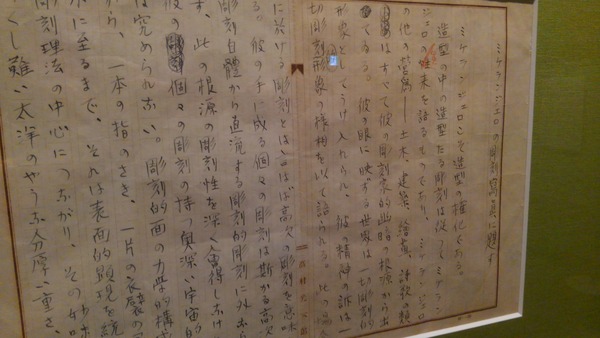 ミケランジェロの彫刻写真に題す
ミケランジェロこそ造型の権化である。
造型の中の造型たる彫刻は従つてミケラン
ジェロの本来を語るものであり、ミケランジェロ
の他の営為——土木、建築、絵画、詩歌の類
はすべて彼の彫刻家的幽暗の根源から出
てゐる。彼の眼に映ずる世界は一切彫刻的
形象としてうけ入れられ、彼の精神の訴は一
切彫刻形象の様相を以て語られる。此の
に於ける彫刻とはいはば高次の彫刻を意味
る。彼の手に成る個々の彫刻は斯かる高次
彫刻自體から直流する彫刻的彫刻に外なら
す、此の根源の彫刻性を深く会得しなけ
彼の個々の彫刻の持つ奥深い宇宙的
は究められない。彫刻的面の力学的構成
から、一本の指のさき、一片の衣襞の
に至るまで、それは表面的顕現を統
彫刻理法の中心につながり、その
くし難い太洋のやうな分厚い重さ、